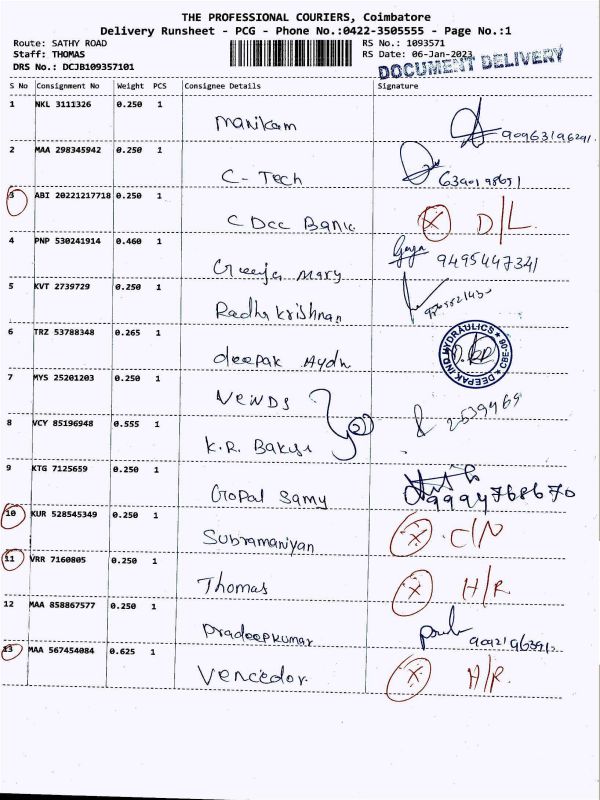 THE PROFESSIONAL COURIERS, Coimbatore
Delivery Runsheet - PCG - Phone No.:0422-3505555 - Page No.:1
Route: SATHY ROAD RS No.: 1093571
Staff: THOMAS RS Date: 06-Jan-2023
DRS No.: DCJB109357101 DOCUMENT DELIVERY
S No Consignment No Weight PCS Consignee Details Signature
1 NKL 3111326 0.250 1
Manikam
2 MAA 298345942 0.250 1
C-Tech
3 ABI 20221217718 0.250 1
CDCC Bank D/L
4 PNP 530241914 0.460 1
Mary 9495447341
5 KVT 2739729 0.250 1
Radha Krishnan
6 TRZ 53788348 0.265 1
DEEPAK IND HYDRAULICS
deepak
7 MYS 25201203 0.250 1
VENDS 2539469
8 VCY 85196948 0.555 1
K.R.
9 KTG 7125659 0.250 1
Gopal Samy 9994768670
10 KUR 528545349 0.250 1
Subramaniyan C/N
11 VRR 7160805 0.250 1
Thomas H/R
12 MAA 858867577 0.250 1
Pradeepkumar
13 MAA 567454084 0.625 1
Vencedor H/R